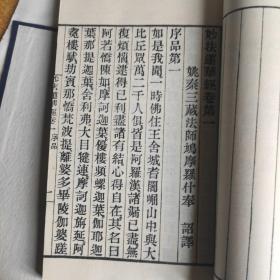 妙法蓮華經卷第一
姚秦三藏法師鳩摩羅什奉 詔譯
序品第一
如是我聞一時佛住王舍城耆闍崛山中與大
比丘眾萬二千人俱皆是阿羅漢諸漏已盡無
復煩惱逮得己利盡諸有結心得自在其名曰
阿若憍陳如摩訶迦葉優樓頻螺迦葉伽耶迦
葉那提迦葉舍利弗大目犍連摩訶迦旃延阿
㝹樓馱劫賓那憍梵波提離婆多畢陵伽婆蹉